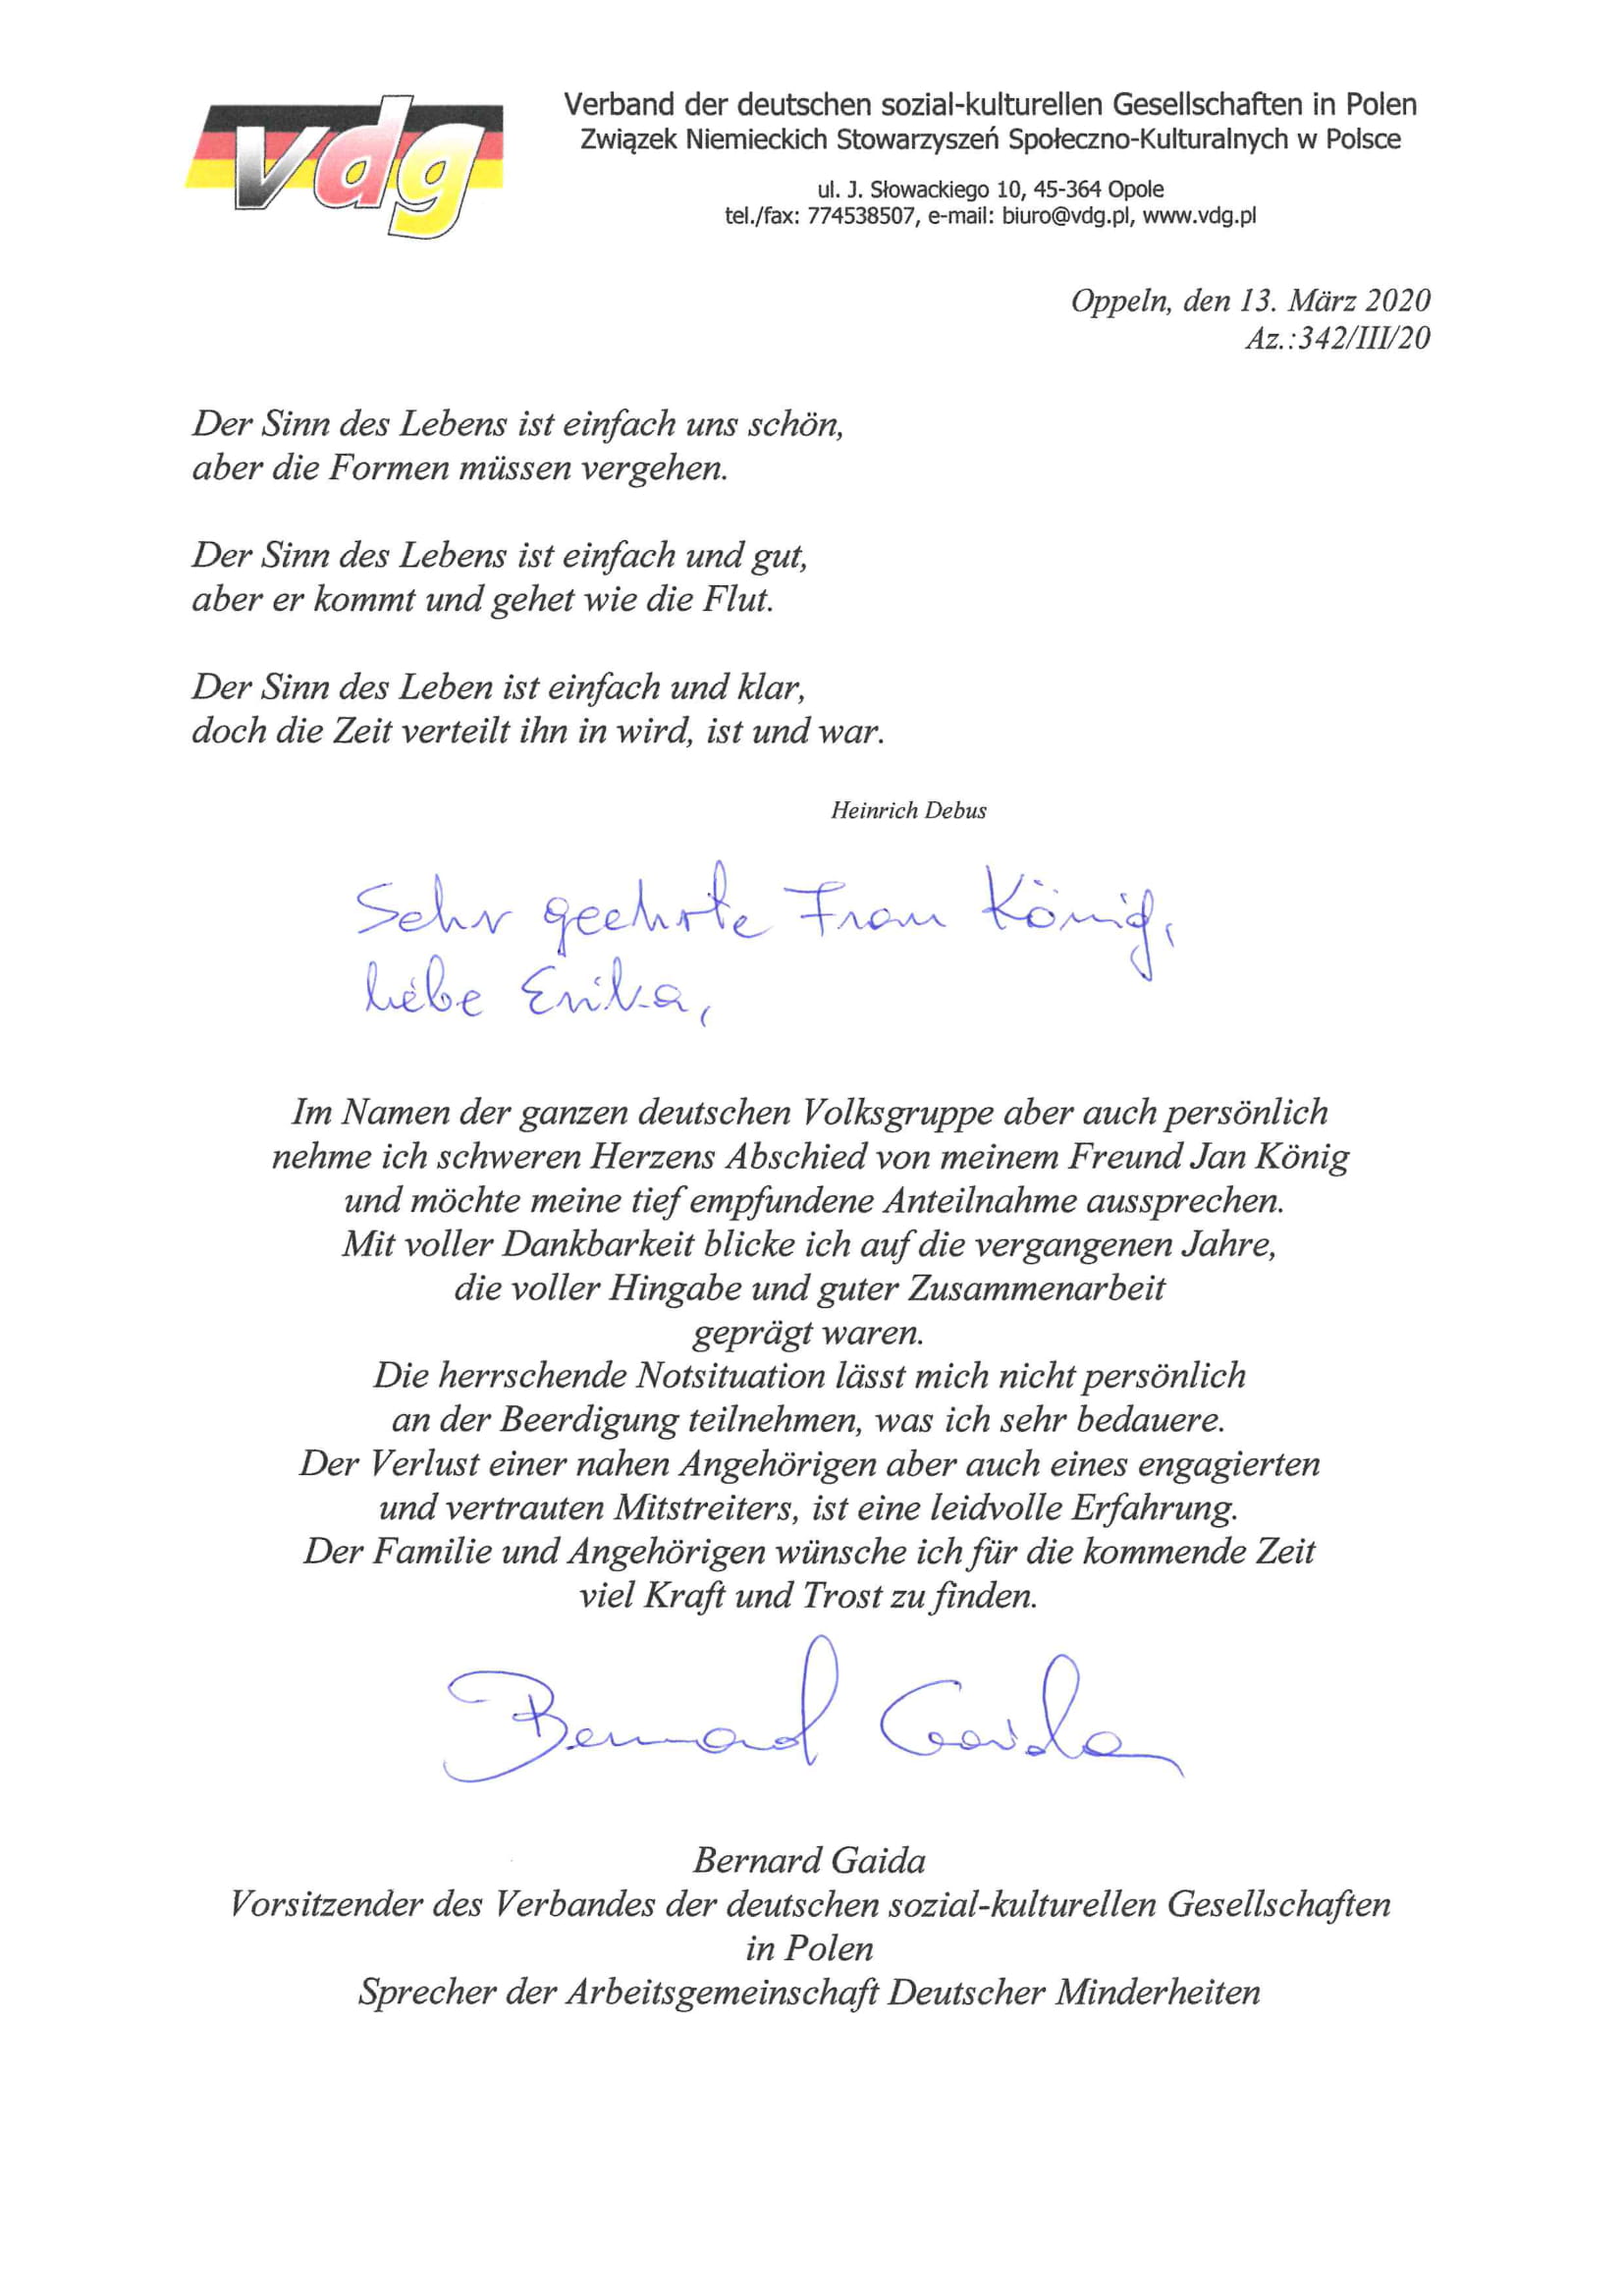 vdg
Verband der deutschen sozial-kulturellen Gesellschaften in Polen
Związek Niemieckich Stowarzyszeń Społeczno-Kulturalnych w Polsce
ul. J. Słowackiego 10, 45-364 Opole
tel./fax: 774538507, e-mail: biuro@vdg.pl, www.vdg.pl
Oppeln, den 13. März 2020
Az.:342/III/20
Der Sinn des Lebens ist einfach uns schön,
aber die Formen müssen vergehen.
Der Sinn des Lebens ist einfach und gut,
aber er kommt und gehet wie die Flut.
Der Sinn des Leben ist einfach und klar,
doch die Zeit verteilt ihn in wird, ist und war.
Heinrich Debus
Sehr geehrte Frau König,
liebe Erika,
Im Namen der ganzen deutschen Volksgruppe aber auch persönlich
nehme ich schweren Herzens Abschied von meinem Freund Jan König
und möchte meine tief empfundene Anteilnahme aussprechen.
Mit voller Dankbarkeit blicke ich auf die vergangenen Jahre,
die voller Hingabe und guter Zusammenarbeit
geprägt waren.
Die herrschende Notsituation lässt mich nicht persönlich
an der Beerdigung teilnehmen, was ich sehr bedauere.
Der Verlust einer nahen Angehörigen aber auch eines engagierten
und vertrauten Mitstreiters, ist eine leidvolle Erfahrung.
Der Familie und Angehörigen wünsche ich für die kommende Zeit
viel Kraft und Trost zu finden.
Bernard Gaida
Bernard Gaida
Vorsitzender des Verbandes der deutschen sozial-kulturellen Gesellschaften
in Polen
Sprecher der Arbeitsgemeinschaft Deutscher Minderheiten